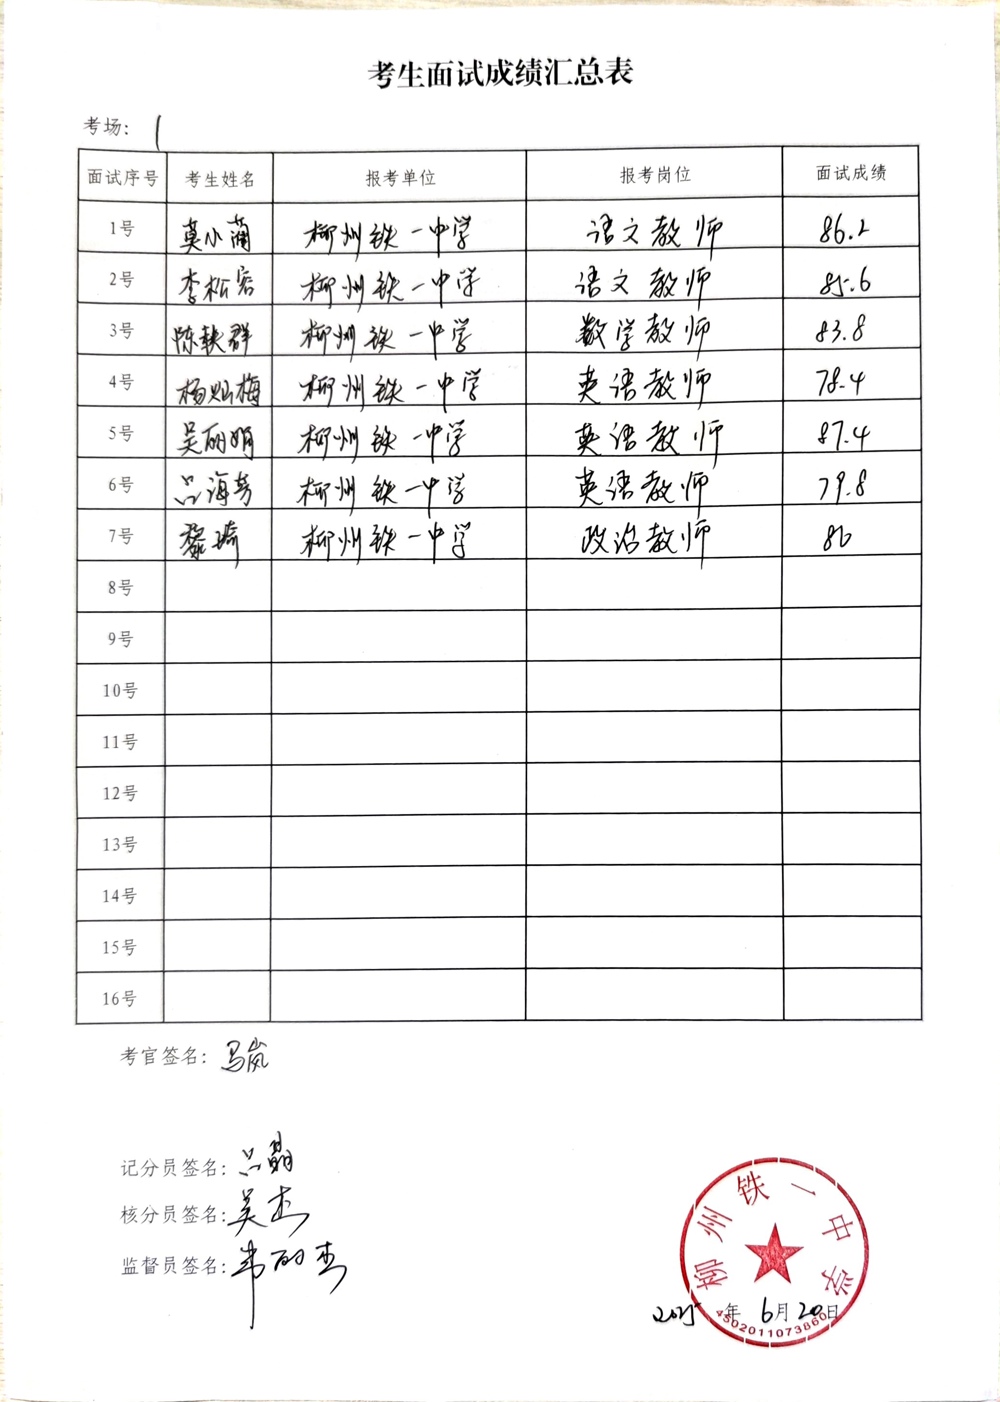 考生面试成绩汇总表
考场： 1
面试序号 考生姓名 报考单位 报考岗位 面试成绩
1号 莫小蔺 柳州铁一中学 语文教师 86.2
2号 李松容 柳州铁一中学 语文教师 85.6
3号 陈轶群 柳州铁一中学 数学教师 83.8
4号 杨灿梅 柳州铁一中学 英语教师 78.4
5号 吴丽娟 柳州铁一中学 英语教师 87.4
6号 吕海芳 柳州铁一中学 英语教师 79.8
7号 黎琦 柳州铁一中学 政治教师 86
8号
9号
10号
11号
12号
13号
14号
15号
16号
考官签名： 马岚
记分员签名： 吕晶
核分员签名： 吴杰
监督员签名： 韦丽杰
柳州铁一中学
2025年6月20日
4502011073860